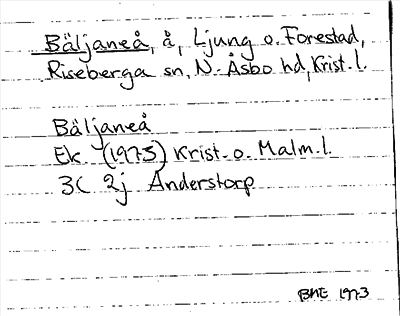 Bäljaneå, å, Ljung o. Forestad,
Riseberga sn, N. Åsbo hd, Krist. l.
Bäljaneå
Ek (1973) Krist. o. Malm. l.
3C 2j Anderstorp
BHE 1973